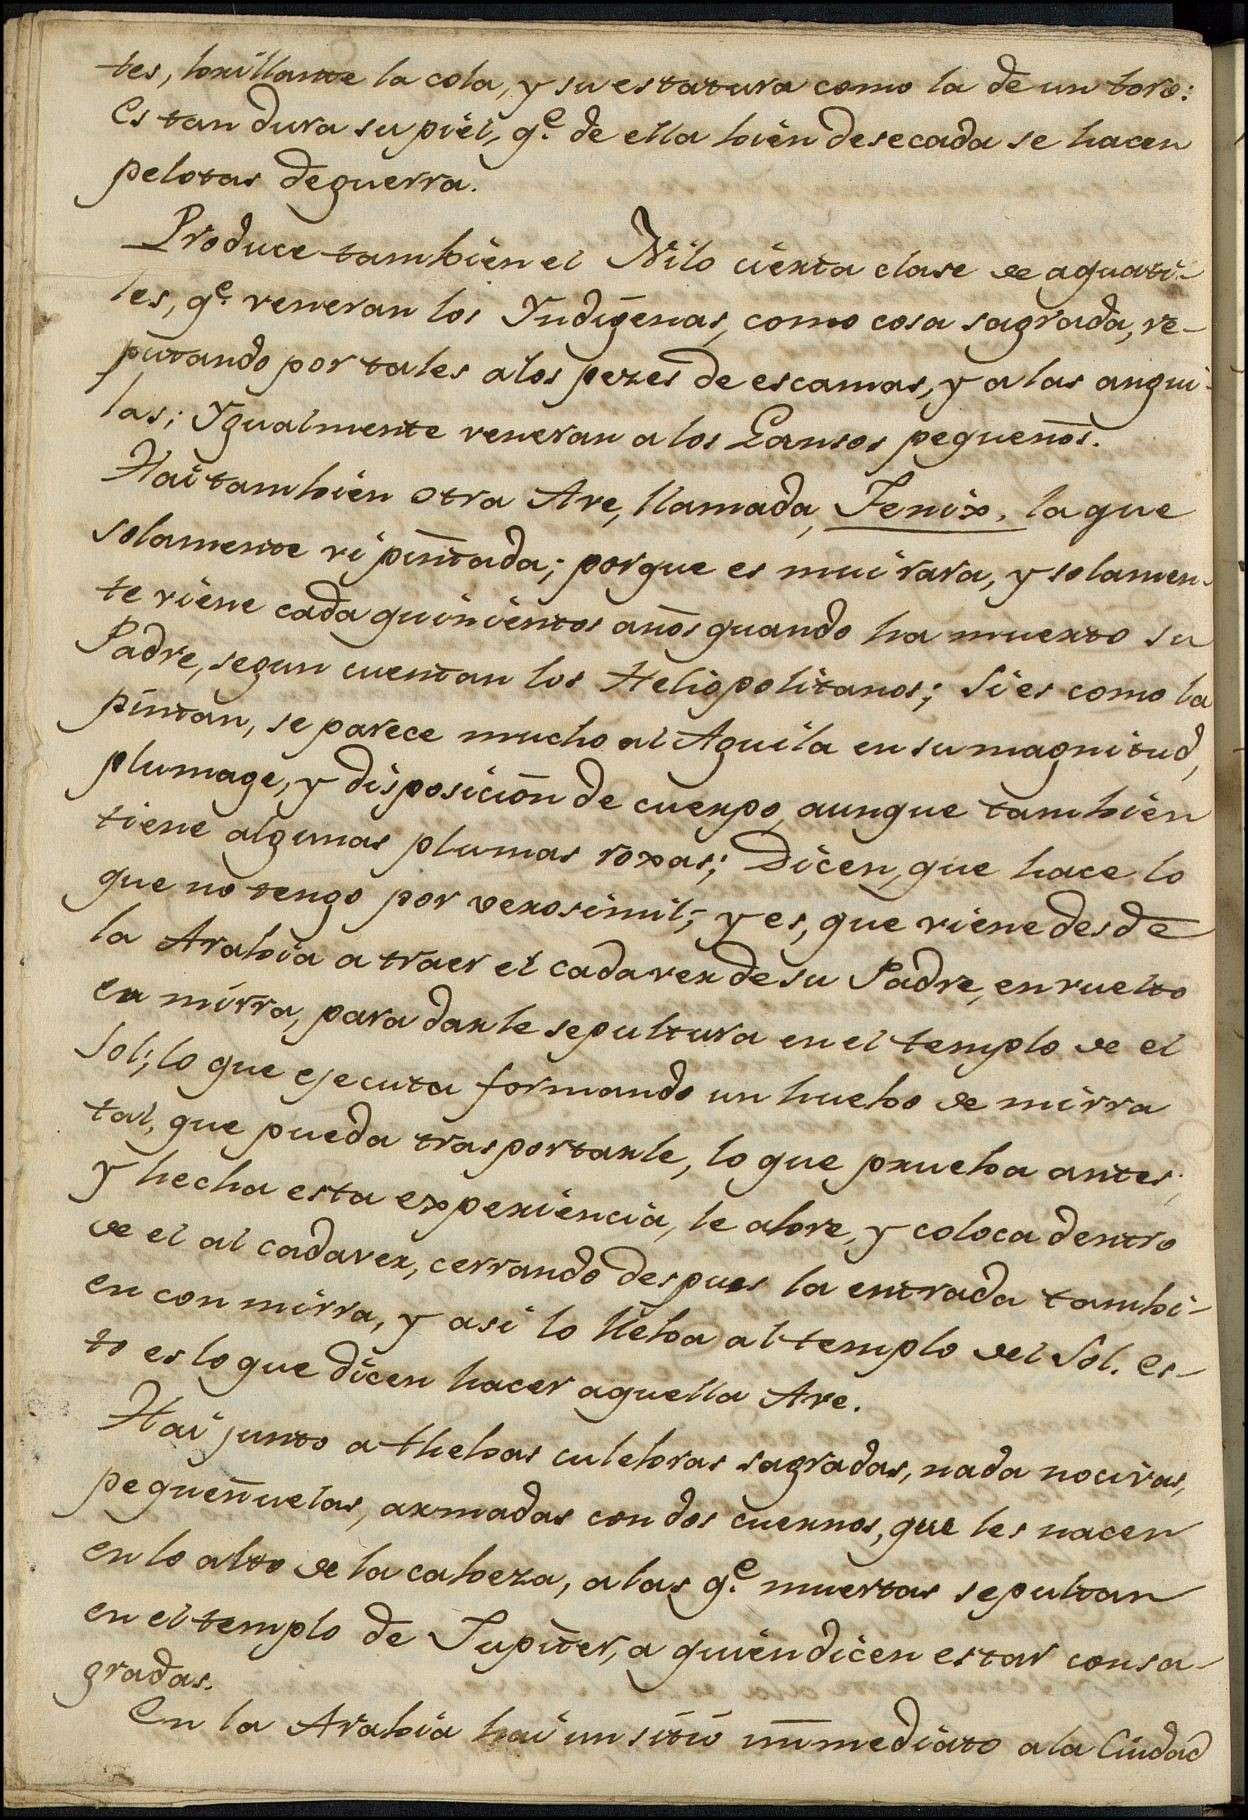 tes, brillante la cola, y su estatura como la de un toro:
Es tan dura su piel, q.e de ella bien desecada se hacen
pelotas de guerra.
Produce tambien el Nilo cierta clase de aguati-
les, q.e veneran los Yndigenas, como cosa sagrada, re-
putando por tales a los pezes de escamas, y a las angui-
las; Ygualmente veneran a los Gansos pequeños.
Hai tambien otra Ave, llamada, Fenix, la que
solamente vi pintada; porque es mui rara, y solamen-
te viene cada quinientos años quando ha muerto su
Padre, segun cuentan los Heliopolitanos; Si es como la
pintan, se parece mucho al Aguila en su magnitud,
plumage, y disposicion de cuerpo, aunque tambien
tiene algunas plumas roxas; Dicen, que hace lo
que no tengo por verosimil; y es, que viene desde
la Arabia a traer el cadaver de su Padre, envuelto
en mirra, para darle sepultura en el templo de el
Sol; lo que ejecuta formando un huebo de mirra
tal, que pueda trasportarle, lo que prueba antes;
y hecha esta experiencia, le abre, y coloca dentro
de el al cadaver, cerrando despues la entrada tambi-
en con mirra, y asi lo lleba al templo del Sol. Es-
to es lo que dicen hacer aquella Ave.
Hai junto a Thebas culebras sagradas, nada nocivas,
pequeñuelas, armadas con dos cuernos, que les nacen
en lo alto de la cabeza, a las q.e muertas sepultan
en el templo de Jupiter, a quien dicen estar consa-
gradas.
En la Arabia hai un sitio inmediato a la Ciudad